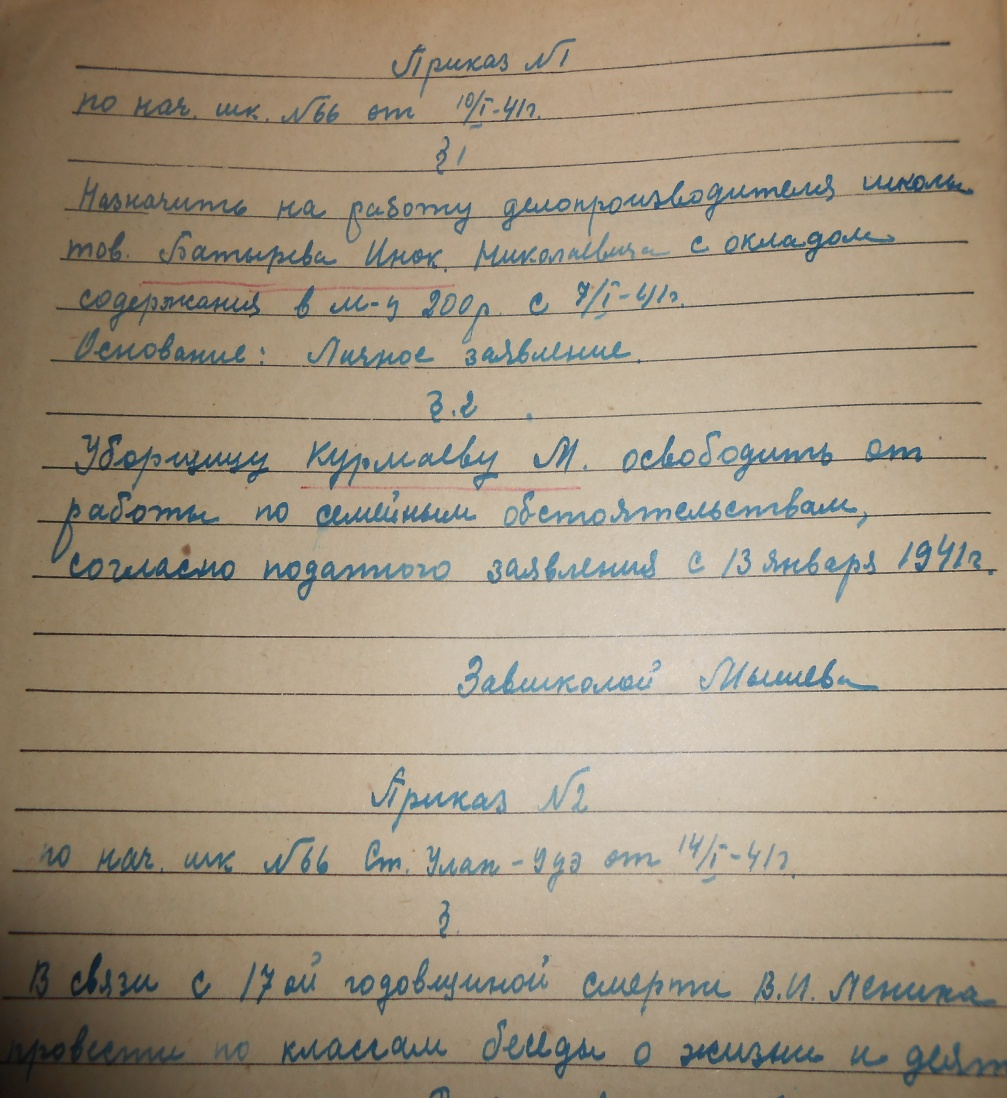 Приказ №1
по нач. шк. №66 от 10/I-41г.
§1
Назначить на работу делопроизводителя школы
тов. Батырева Инок. Николаевича с окладом
содержания в м-ц 200р. с 7/I-41г.
Основание: Личное заявление.
§.2
Уборщицу Курмаеву М. освободить от
работы по семейным обстоятельствам,
согласно поданного заявления с 13 января 1941г.
Завшколой Мышева
Приказ №2
по нач. шк №66 Ст. Улан-Удэ от 14/I-41г.
§.
В связи с 17ой годовщиной смерти В.И. Ленина
провести по классам беседы о жизни и деят